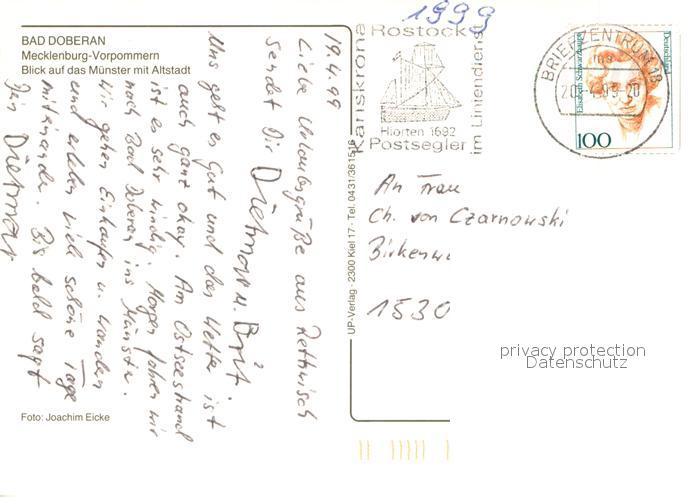 1999
BAD DOBERAN
Mecklenburg-Vorpommern
Blick auf das Münster mit Altstadt
19.4.99
Liebe Urlaubsgrüße aus Rethwisch
sendet Dir Dietmar u. Brit
Uns geht es Gut und das Wetter ist
auch ganz okay. Am Ostseestrand
ist es sehr windig. Morgen fahren wir
nach Bad Doberan ins Münster.
Wir gehen Einkaufen u. Wandern
und erleben viele schöne Tage
miteinander. Bis bald sagt
Dein Dietmar
Foto: Joachim Eicke
UP-Verlag · 2300 Kiel 17 · Tel. 0431/361515
Rostock
Karlskrona
im Liniendienst
Hiorten 1692
Postsegler
BRIEFZENTRUM 18
Deutschland
Elisabeth Schwarzhaupt
100
An Frau
Ch. von Czarnowski
1530
privacy protection
Datenschutz